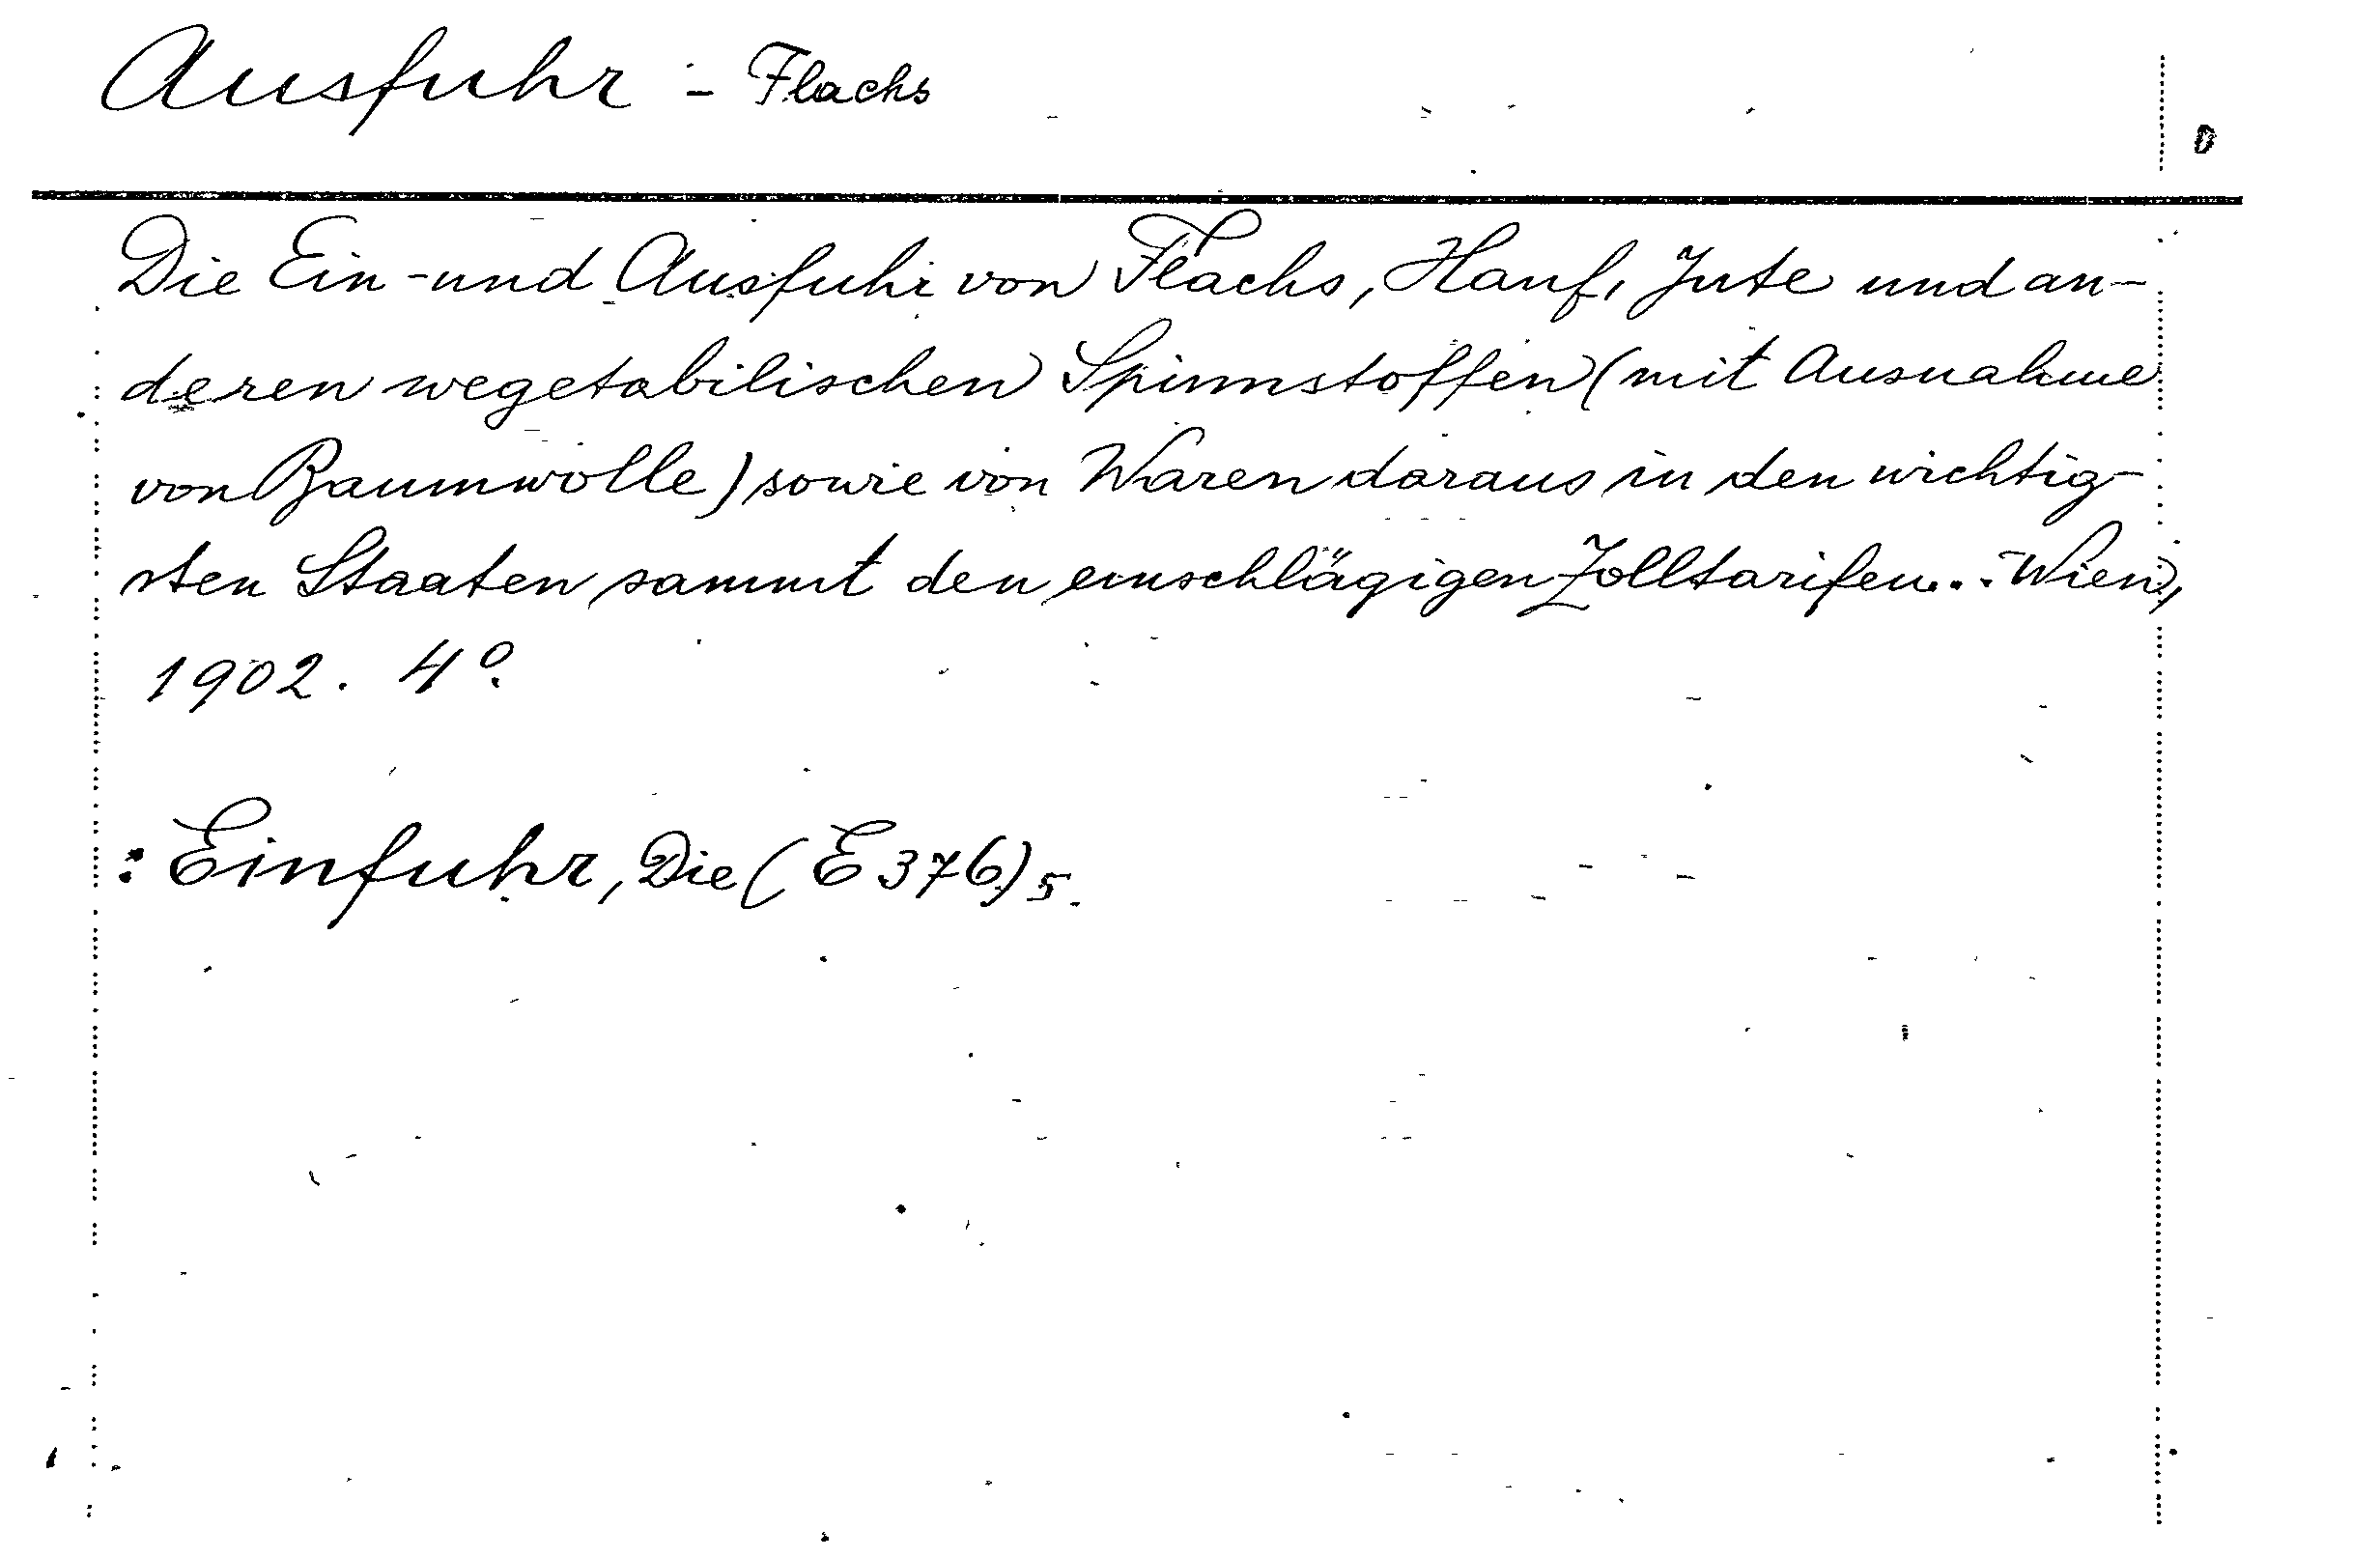 Ausfuhr - Flachs
Die Ein-und Ausfuhr von Flachs, Hanf, Jute und an-
deren wegetabilischen Spinnstoffen (mit Ausnahme
von Baumwolle) sowie von Waren daraus in den wichtig-
sten Staaten sammt den einschlägigen Zolltarifen... Wien,
1902. 4º.
: Einfuhr, Die (E 376) 5.